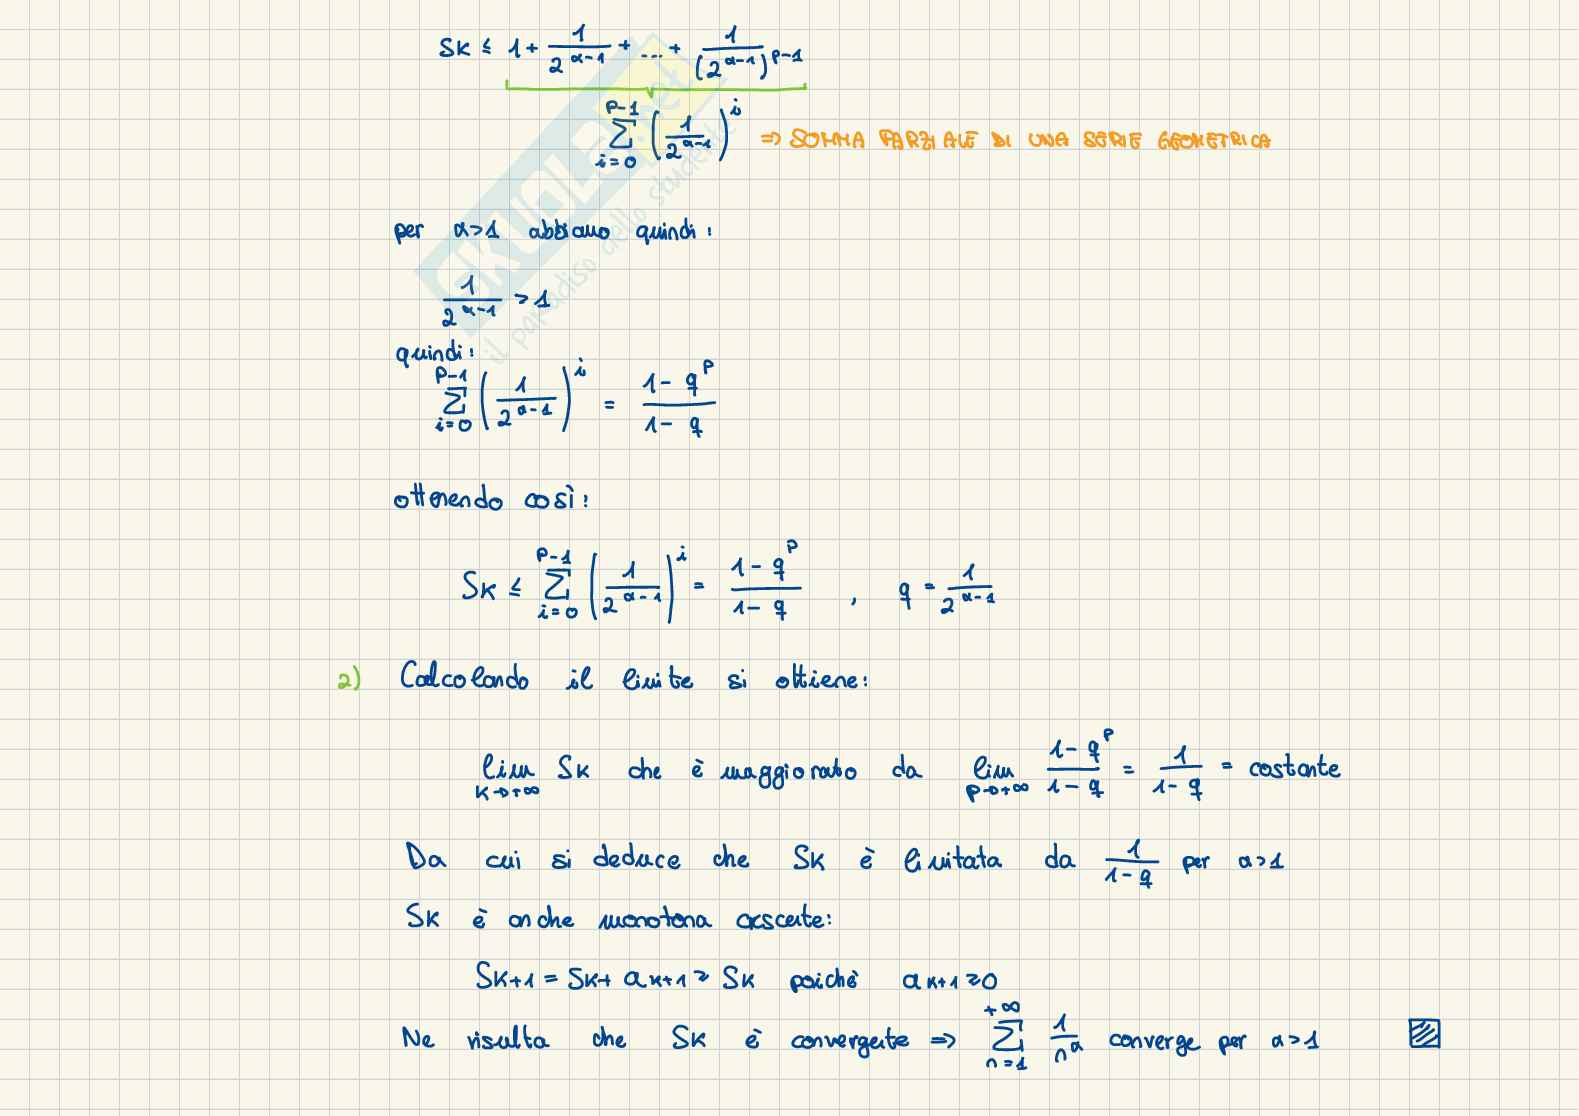 Sk ≤ 1 + 1/2^(α-1) + ... + 1/(2^(α-1))^(p-1)
∑_{i=0}^{p-1} (1/2^(α-1))^i ⇒ SOMMA PARZIALE DI UNA SERIE GEOMETRICA
per α>1 abbiamo quindi:
1/2^(α-1) > 1
quindi:
∑_{i=0}^{p-1} (1/2^(α-1))^i = (1-q^p)/(1-q)
ottenendo così:
Sk ≤ ∑_{i=0}^{p-1} (1/2^(α-1))^i = (1-q^p)/(1-q) , q = 1/2^(α-1)
2) Calcolando il limite si ottiene:
lim_{k→+∞} Sk che è maggiorato da lim_{p→+∞} (1-q^p)/(1-q) = 1/(1-q) = costante
Da cui si deduce che Sk è limitata da 1/(1-q) per α>1
Sk è anche monotona crescente:
Sk+1 = Sk + ak+1 ≥ Sk poichè ak+1 ≥ 0
Ne risulta che Sk è convergente ⇒ ∑_{n=1}^{+∞} 1/n^α converge per α>1
SKUOLA.net
il paradiso dello studente